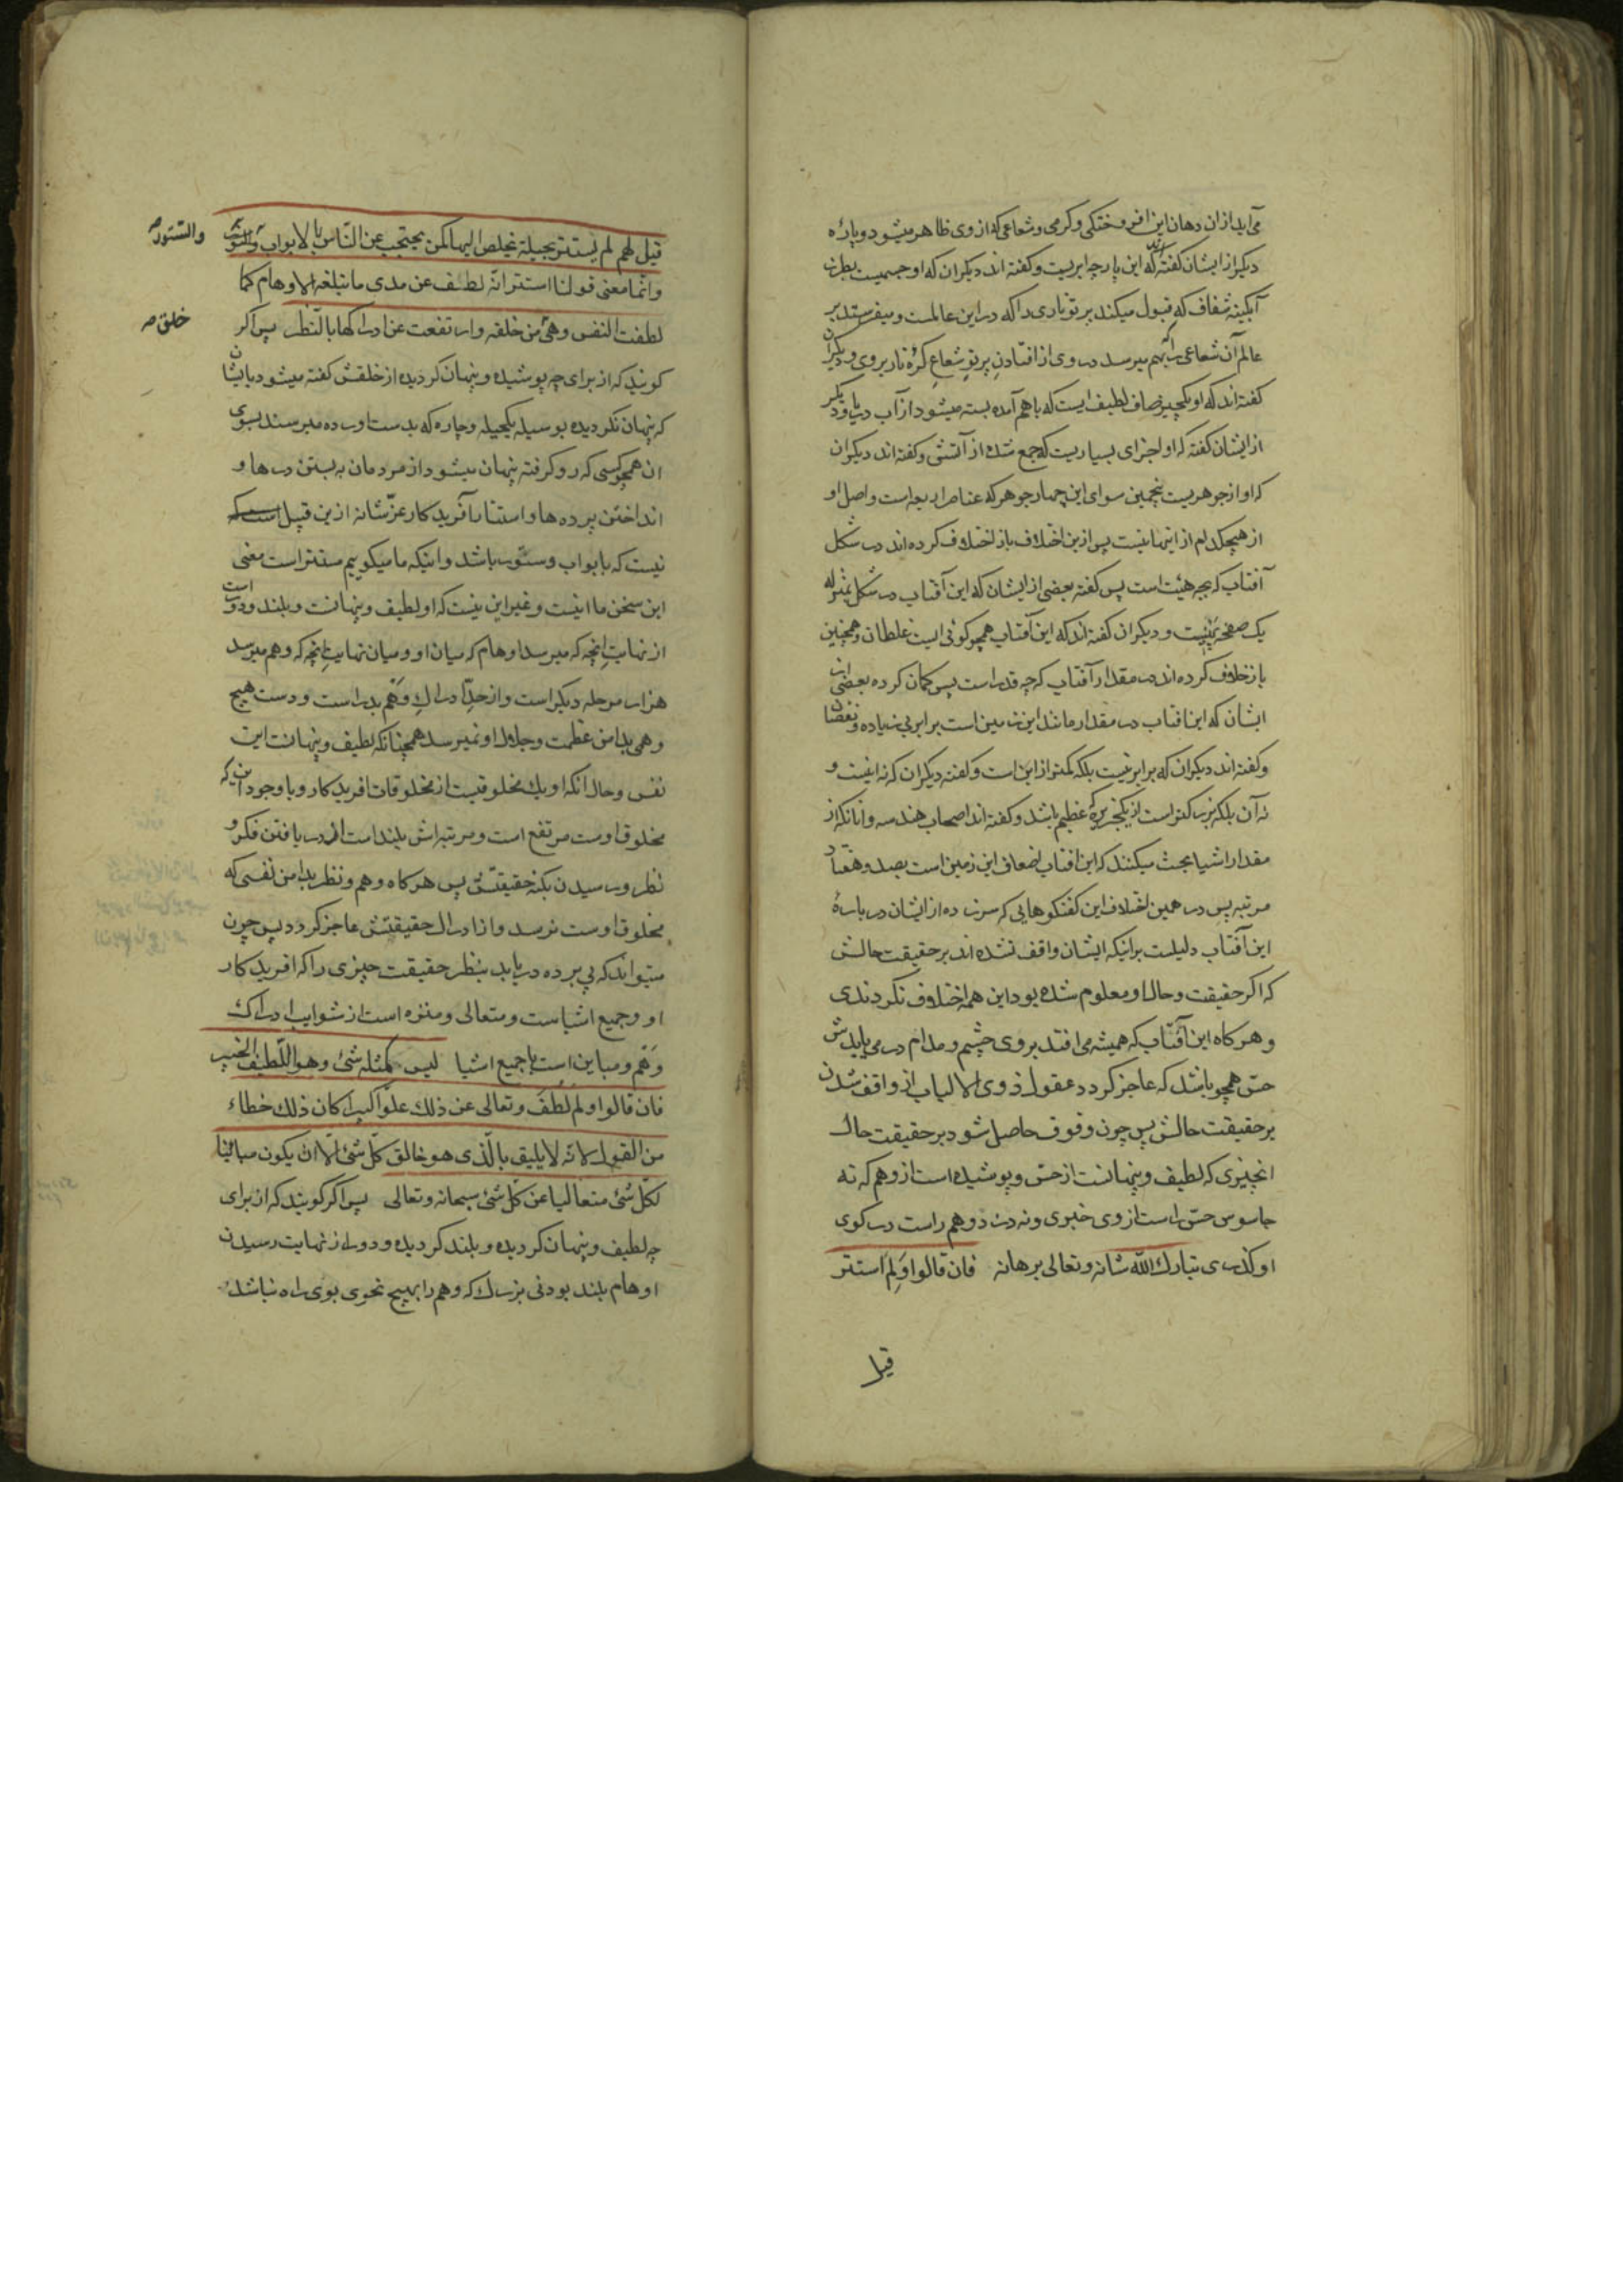 می‌آید از ان دهان این افروختکی و کرمی و شعاعی که از وی ظاهر میشود و پارهٔ
دیکر از ایشان کفته‌اند که این پارچه ابریست و کفته اند دیکران که او جسمیست بطرز
آبکینهٔ شفاف که قبول میکند پرتو ناری را که در این عالمست و میفرستد بر
عالم آن شعاعی را که بهم میرسد در وی از افتادن پرتو شعاع کرهٔ نار بروی و دیکران
کفته اند که او یکچیز صاف لطیف ایست که با هم آمده بسته میشود از آب دریا و دیکر
از ایشان کفته که او اجزای بسیاریست که جمع شده از آتشی و کفته اند دیکران
که او از جوهریست پنجمین سوای این چهار جوهر که عناصر اربعه است و اصل او
از هیچکدام از اینها نیست پس از ین اختلاف باز اختلاف کرده اند در شکل
آفتاب که بچه هیئت است پس کفته بعضی از ایشان که این آفتاب در شکل بمنزله
یک صفحهٔ پهنیست و دیکران کفته اند که این آفتاب همچو کوئی است غلطان و همچنین
باز خلاف کرده اند در مقدار آفتاب که چه قدر است پس کمان کرده بعضی از
ایشان که این افتاب در مقدار مانند این زمین است برابر بی زیاده و نقصا
و کفته اند دیکران که برابر نیست بلکه کمتر از این است و کفته دیکران که نه اینست و
نه آن بلکه بزرکتر است از یکجزیرهٔ عظیم باشد و کفته اند اصحاب هندسه و آنانکه از
مقدار اشیا بحث میکنند که این افتاب اضعاف این زمین است بصد و هفتاد
مرتبه پس در همین اختلاف این کفتکوهایی که سر زده از ایشان در بارهٔ
این آفتاب دلیلست بر اینکه ایشان واقف نشده اند بر حقیقت حالش
که اکر حقیقت و حال او معلوم شده بود این همه اختلاف نکردندی
و هر کاه این آفتاب که همیشه می افتد بروی چشم و مدام در می یابدش
حس همچو باشد که عاجز کردد عقول ذوی الالباب از واقف شدن
بر حقیقت حالش پس چون وقوف حاصل شود بر حقیقت حال
انچیزی که لطیف و پنهانست از حس و پوشیده است از وهم که نه
جاسوس حس را ست از وی خبری و نه دزد وهم راست در کوی
او کذری تبارک الله شانه و تعالی برهانه فان قالوا وَلِمَ استتر
قیل
قیل لهم لم یستتر بحیلة یخلص الیها کمن یحتجب عن النّاس بالابواب و الستور
والستور ص
و انّما معنی قولنا استتر انّه لطف عن مدی ما تبلغه الاوهام کما
لطفت النفس و هی من خلقه و ارتفعت عن ادراکها بالنّظر پس اکر
خلق ص
کویند که از برای چه پوشیده و پنهان کردیده از خلقش کفته میشود بایشان
که پنهان نکردیده بوسیله یکحیله و چاره که بدست اورده میرسند بسوی
ان همچو کسی که رو کرفته پنهان میشود از مردمان به بستن درها و
انداختن پرده ها و استتار آفریدکار عزّ شانه از ین قبیل
نیست که بابواب و ستور باشد و اینکه ما میکوییم مستتر است معنی
این سخن ما اینست و غیر این نیست که او لطیف و پنهانست و بلند و دور است
از نهایت انچه که میرسد اوهام که میان او و میان نهایت انچه که وهم میرسد
هزار مرحله دیکر است و از حدّ ادراک وَهْم بدر است و دست هیچ
وهمی بدامن عظمت و جلال او نمیرسد همچنانکه لطیف و پنهانست این
نفس و حال آنکه او یک مخلوقیست از مخلوقات افریدکار و با وجود این که
مخلوق اوست مرتفع است و مرتبه اش بلند است از دریافتن فکر و
نظر و رسیدن بکنه حقیقتش پس هر کاه وهم و نظر بدامن نفسی که
مخلوق اوست نرسد و از ادراک حقیقتش عاجز کردد پس چون
میتواند که پی برده دریابد بنظر حقیقت چیزی را که افریدکار
او و جمیع اشیا ست و متعالی و منزه است از شوایب ادراک
وَهْم و مباین است با جمیع اشیا لیس کمثله شیٔ و هو اللّطیف الخبیر
فان قالوا و لم لطف و تعالی عن ذلک علوّاً کبیراً کان ذلک خطاء
من القول لانّه لا یلیق بالّذی هو خالق کلّ شیٔ الّا ان یکون مباینا
لکلّ شیٔ متعالیا عن کلّ شیٔ سبحانه و تعالی پس اکر کویند که از برای
چه لطیف و پنهان کردیده و بلند کردیده و دور از نهایت رسیدن
اوهام بلند بودنی بزرک که وهم را بهیچ نحوی بوی راه نباشد